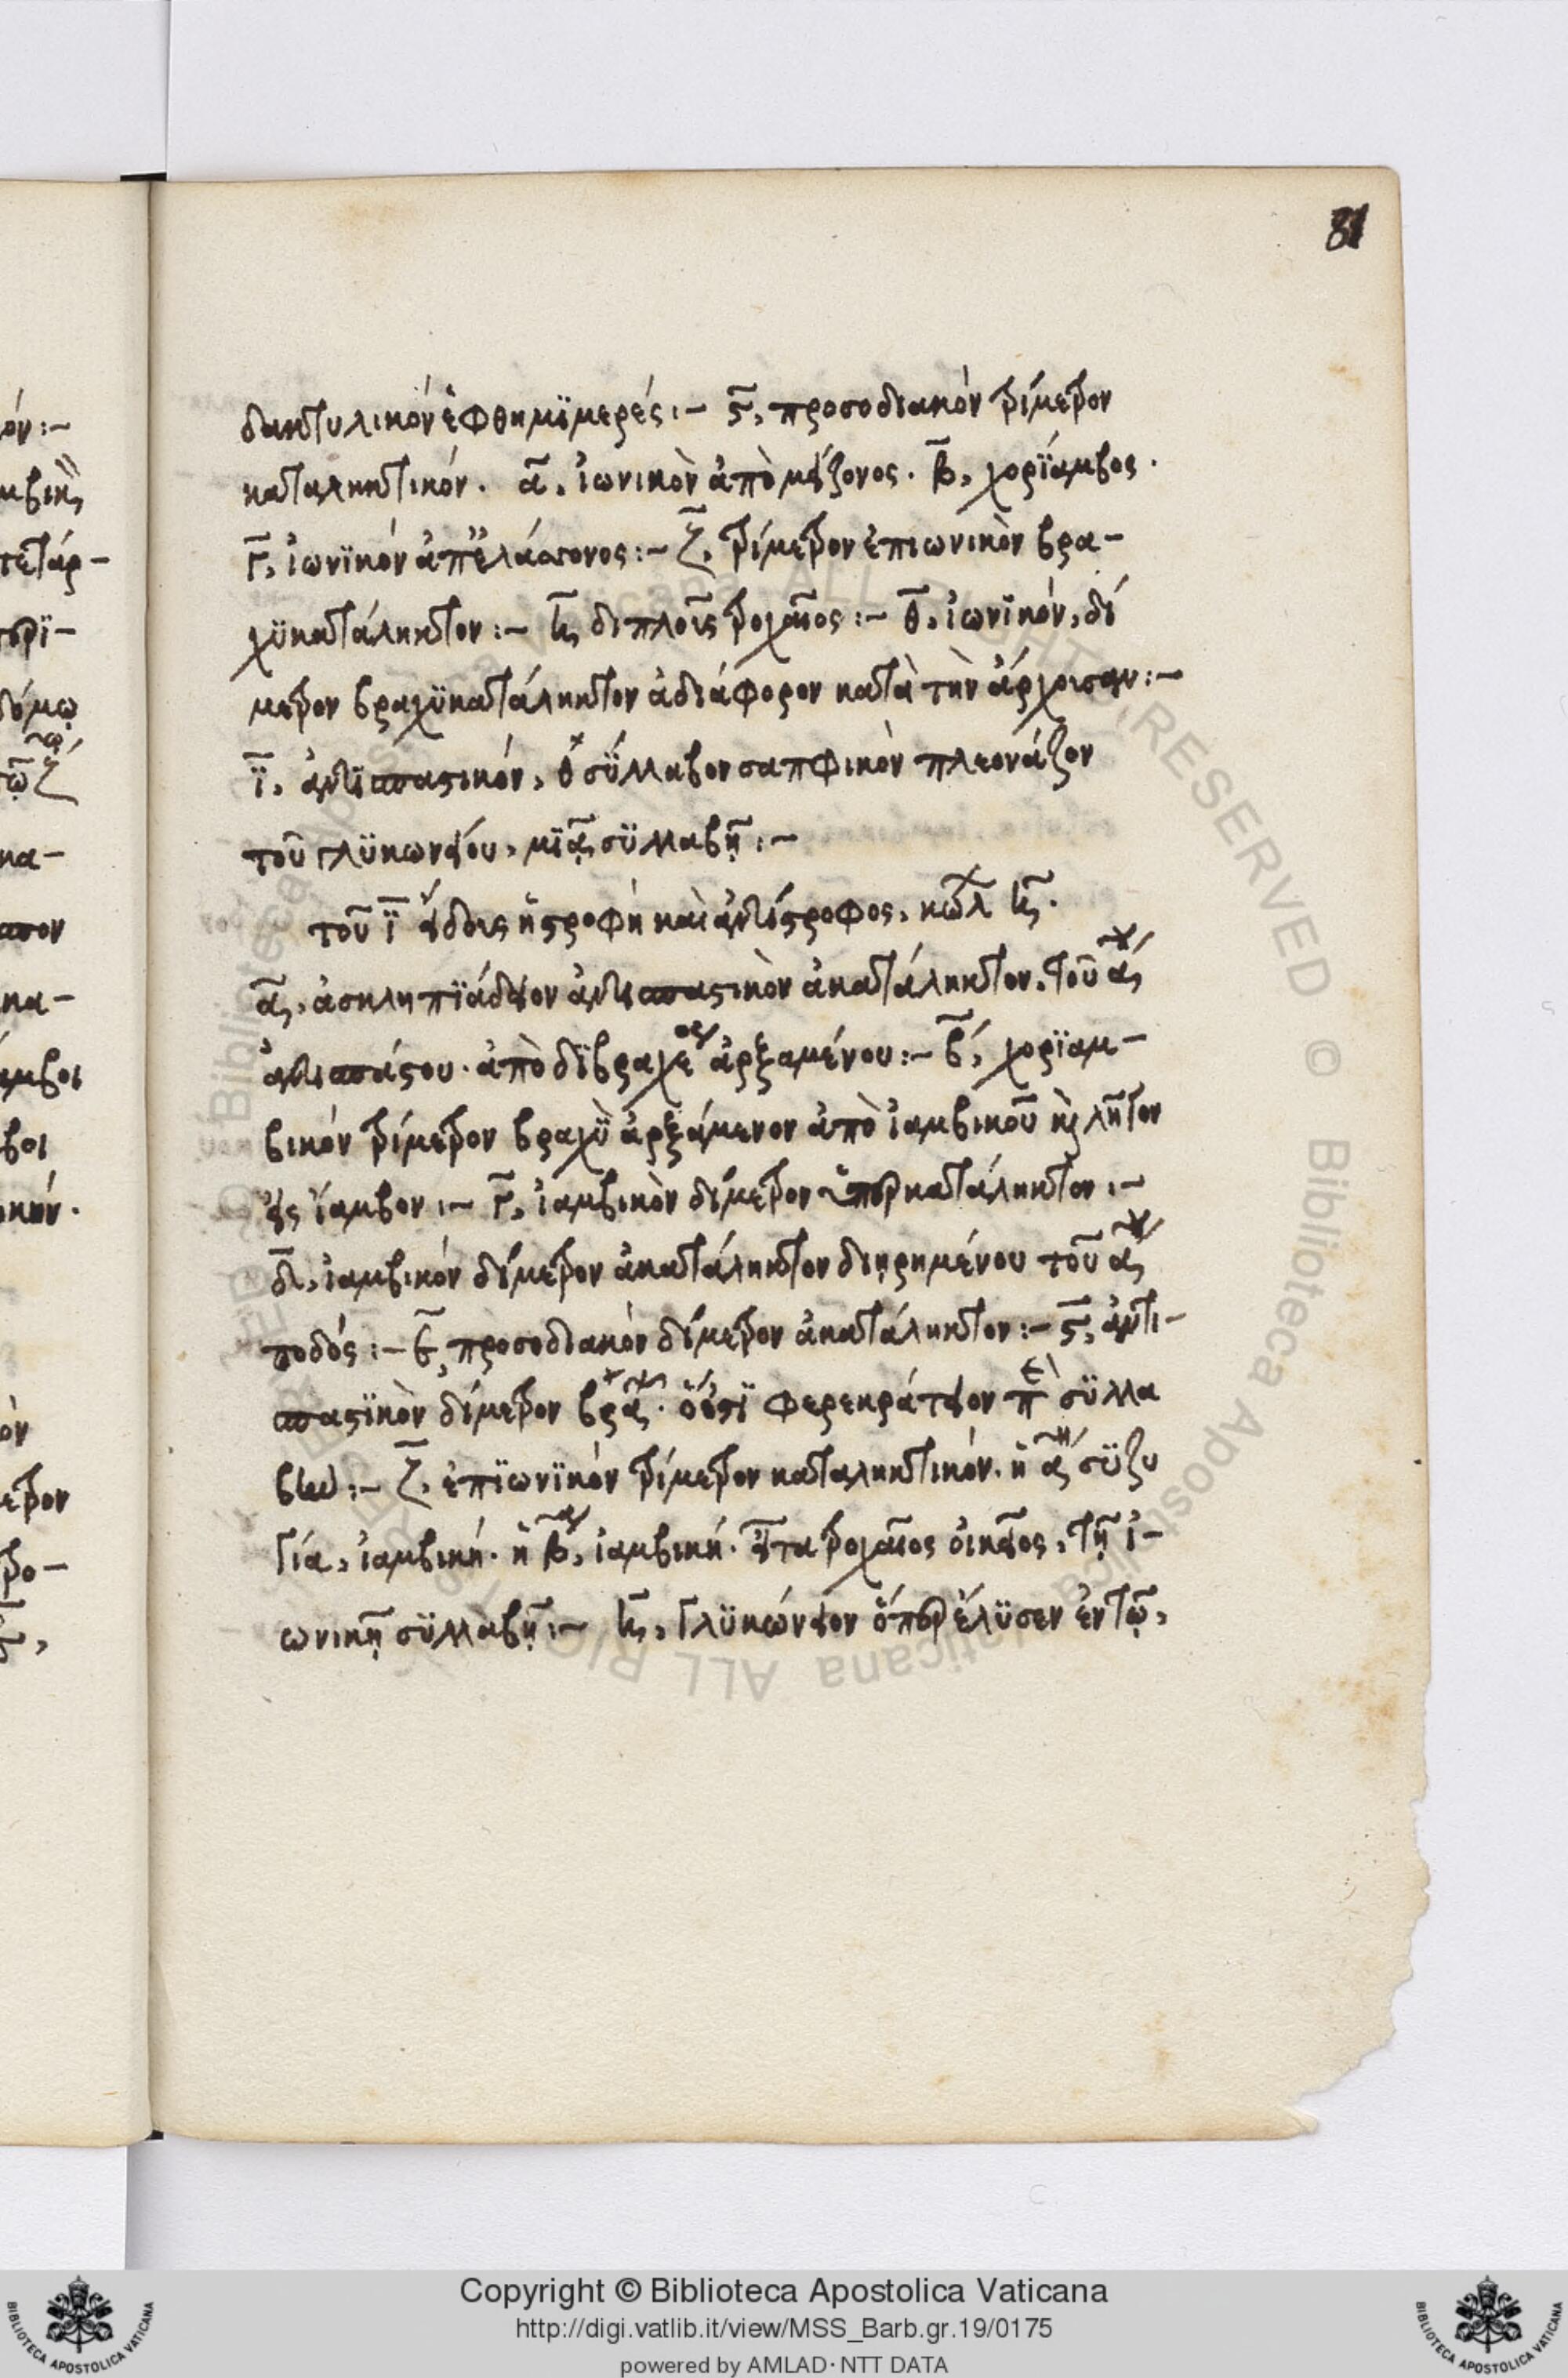 81
δακτυλικόν ἑφθημϊμερές :– ϛ̄, προσοδιακόν τρίμετρον
καταληκτικόν. ᾱ, ἰωνικὸν ἀπὸ μείζονος. β̄, χορϊάμβος.
γ̄, ἰωνϊκόν ἀπ' ἐλάσσονος :– ζ̄. τρίμετρον ἐπιωνικὸν βρα–
χϋκατάληκτον :– η̄ διπλοῦς τροχαῖος :– θ̄, ἰωνϊκόν, δί
μετρον βραχϋκατάληκτον ἀδιάφορον κατὰ τὴν ἄρχουσαν :–
ῑ, ἀντϊσπαστικόν, θσΰλλαβον σαπφικὸν πλεονάζον
τοῦ γλϋκωνείου, μϊᾷ σϋλλαβῇ :–
τοῦ ῑ εἴδους ἡ στροφή καὶ ἀντίστροφος, κώλ η̄.
ᾱ, ἀσκληπϊάδειον ἀντισπαστικὸν ἀκατάληκτον. τοῦ α
ἀντισπάστου. ἀπὸ δϊβραχέος ἀρξαμένου :– β̄, χορϊαμ–
βικόν τρίμετρον βραχϋ ἀρξάμενον ἀπὸ ἰαμβικοῦ κ λῆγον
εἰς ἴαμβον :– γ̄, ἰαμβικὸν δίμετρον ὑπερκατάληκτον :–
δ̄, ἰαμβικόν δίμετρον ἀκατάληκτον διῃρημένου τοῦ α
ποδός :– ε̄, προσοδιακὸν δίμετρον ἀκατάληκτον :– ϛ̄, ἀντι–
σπαστϊκὸν δίμετρον βρα. ὅ ἐστϊ φερεκράτειον π σϋλλα
βῶν :– ζ̄. ἐπϊωνϊκόν τρίμετρον καταληκτικόν. ἡ α σϋζυ
γία, ἰαμβική. ἡ β, ἰαμβική. εἶτα τροχαῖος οἰκεῖος, τῇ ἰ–
ωνικῇ σϋλλαβῇ :– η̄, γλϋκώνειον ὅπερ ἔλϋσεν ἐν τῷ,
όν :–
μβικὴ
τετάρ–
δόμῳ
κα–
κα–
άμβοι
βοι
ὸν
ετρον
τρο–
Copyright © Biblioteca Apostolica Vaticana
http://digi.vatlib.it/view/MSS_Barb.gr.19/0175
powered by AMLAD · NTT DATA
BIBLIOTECA APOSTOLICA VATICANA
BIBLIOTECA APOSTOLICA VATICANA